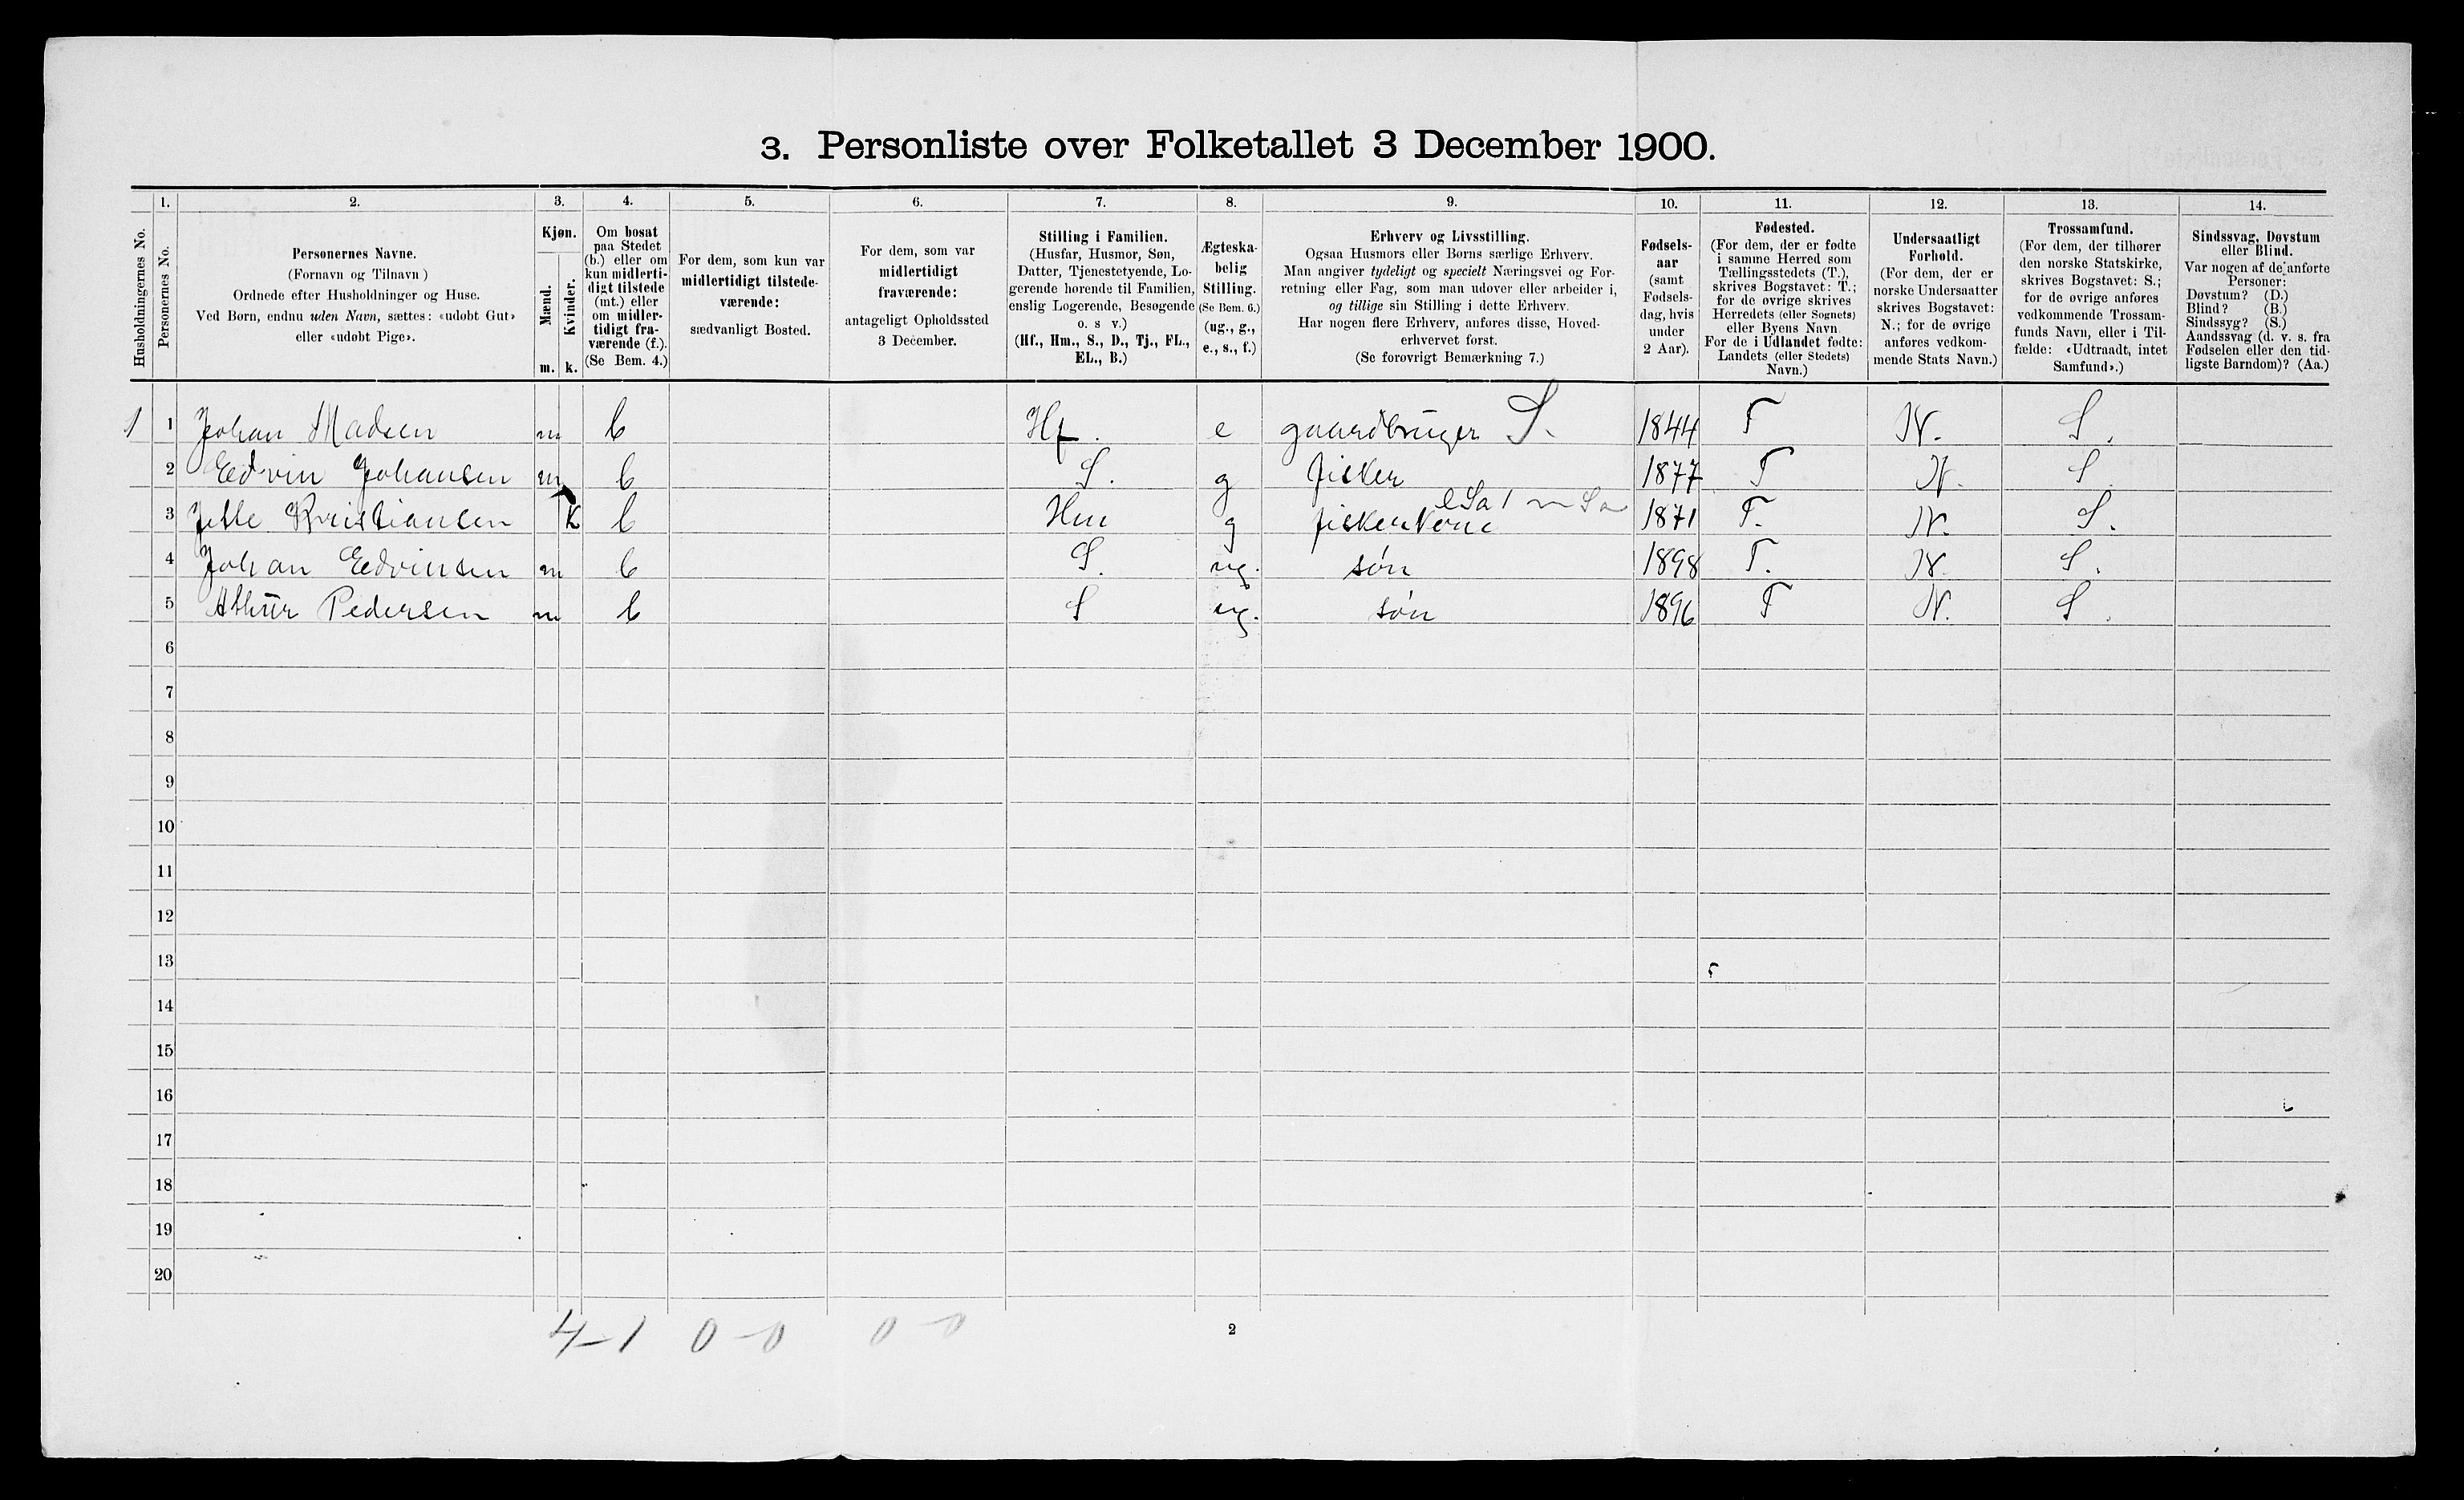 3. Personliste over Folketallet 3 December 1900.
Husholdningernes No.
1. Personernes No.
2. Personernes Navne.
(Fornavn og Tilnavn)
Ordnede efter Husholdninger og Huse.
Ved Børn, endnu uden Navn, sættes: «udøbt Gut»
eller «udøbt Pige».
3. Kjøn.
Mænd. m.
Kvinder. k.
4. Om bosat
paa Stedet
(b.) eller om
kun midlerti-
digt tilstede
(mt.) eller
om midler-
tidigt fra-
værende (f.).
(Se Bem. 4.)
5. For dem, som kun var
midlertidigt tilstede-
værende:
sædvanligt Bosted.
6. For dem, som var
midlertidigt
fraværende:
antageligt Opholdssted
3 December.
7. Stilling i Familien.
(Husfar, Husmor, Søn,
Datter, Tjenestetyende, Lo-
gerende hørende til Familien,
enslig Logerende, Besøgende
o. s v.)
(Hf., Hm., S., D., Tj., FL.,
EL., B.)
8. Ægteska-
belig
Stilling.
(Se Bem. 6.)
(ug., g.,
e., s., f.)
9. Erhverv og Livsstilling.
Ogsaa Husmors eller Børns særlige Erhverv.
Man angiver tydeligt og specielt Næringsvei og For-
retning eller Fag, som man udover eller arbeider i,
og tillige sin Stilling i dette Erhverv.
Har nogen flere Erhverv, anføres disse, Hoved-
erhvervet først.
(Se forøvrigt Bemærkning 7.)
10. Fødsels-
aar
(samt
Fødsels-
dag, hvis
under
2 Aar).
11. Fødested.
(For dem, der er fødte
i samme Herred som
Tællingsstedets (T.),
skrives Bogstavet: T.;
for de øvrige skrives
Herredets (eller Sognets)
eller Byens Navn.
For de i Udlandet fødte:
Landets (eller Stedets)
Navn.)
12. Undersaatligt
Forhold.
(For dem, der er
norske Undersaatter
skrives Bogstavet:
N.; for de øvrige
anføres vedkom-
mende Stats Navn.)
13. Trossamfund.
(For dem, der tilhører
den norske Statskirke,
skrives Bogstavet: S.;
for de øvrige anføres
vedkommende Trossam-
funds Navn, eller i Til-
fælde: «Udtraadt, intet
Samfund».)
14. Sindssvag, Døvstum
eller Blind.
Var nogen af de anførte
Personer:
Døvstum? (D.)
Blind? (B.)
Sindssyg? (S.)
Aandssvag (d. v. s. fra
Fødselen eller den tid-
ligste Barndom)? (Aa.)
1 1 Johan Madsen m b Hf. e gaardbruger S. 1844 T N. S.
2 Edvin Johansen m b S. g fisker 1877 T N. S
3 Jette Kristiansen k b Hm g fiskerkone 1871 T. N. S.
4 Johan Edvinsen m b S. ug. søn 1898 T. N S.
5 Athur Pedersen m b S ug. søn 1896 T N. S.
6
7
8
9
10
11
12
13
14
15
16
17
18
19
20
4-1 0-0 0-0
2